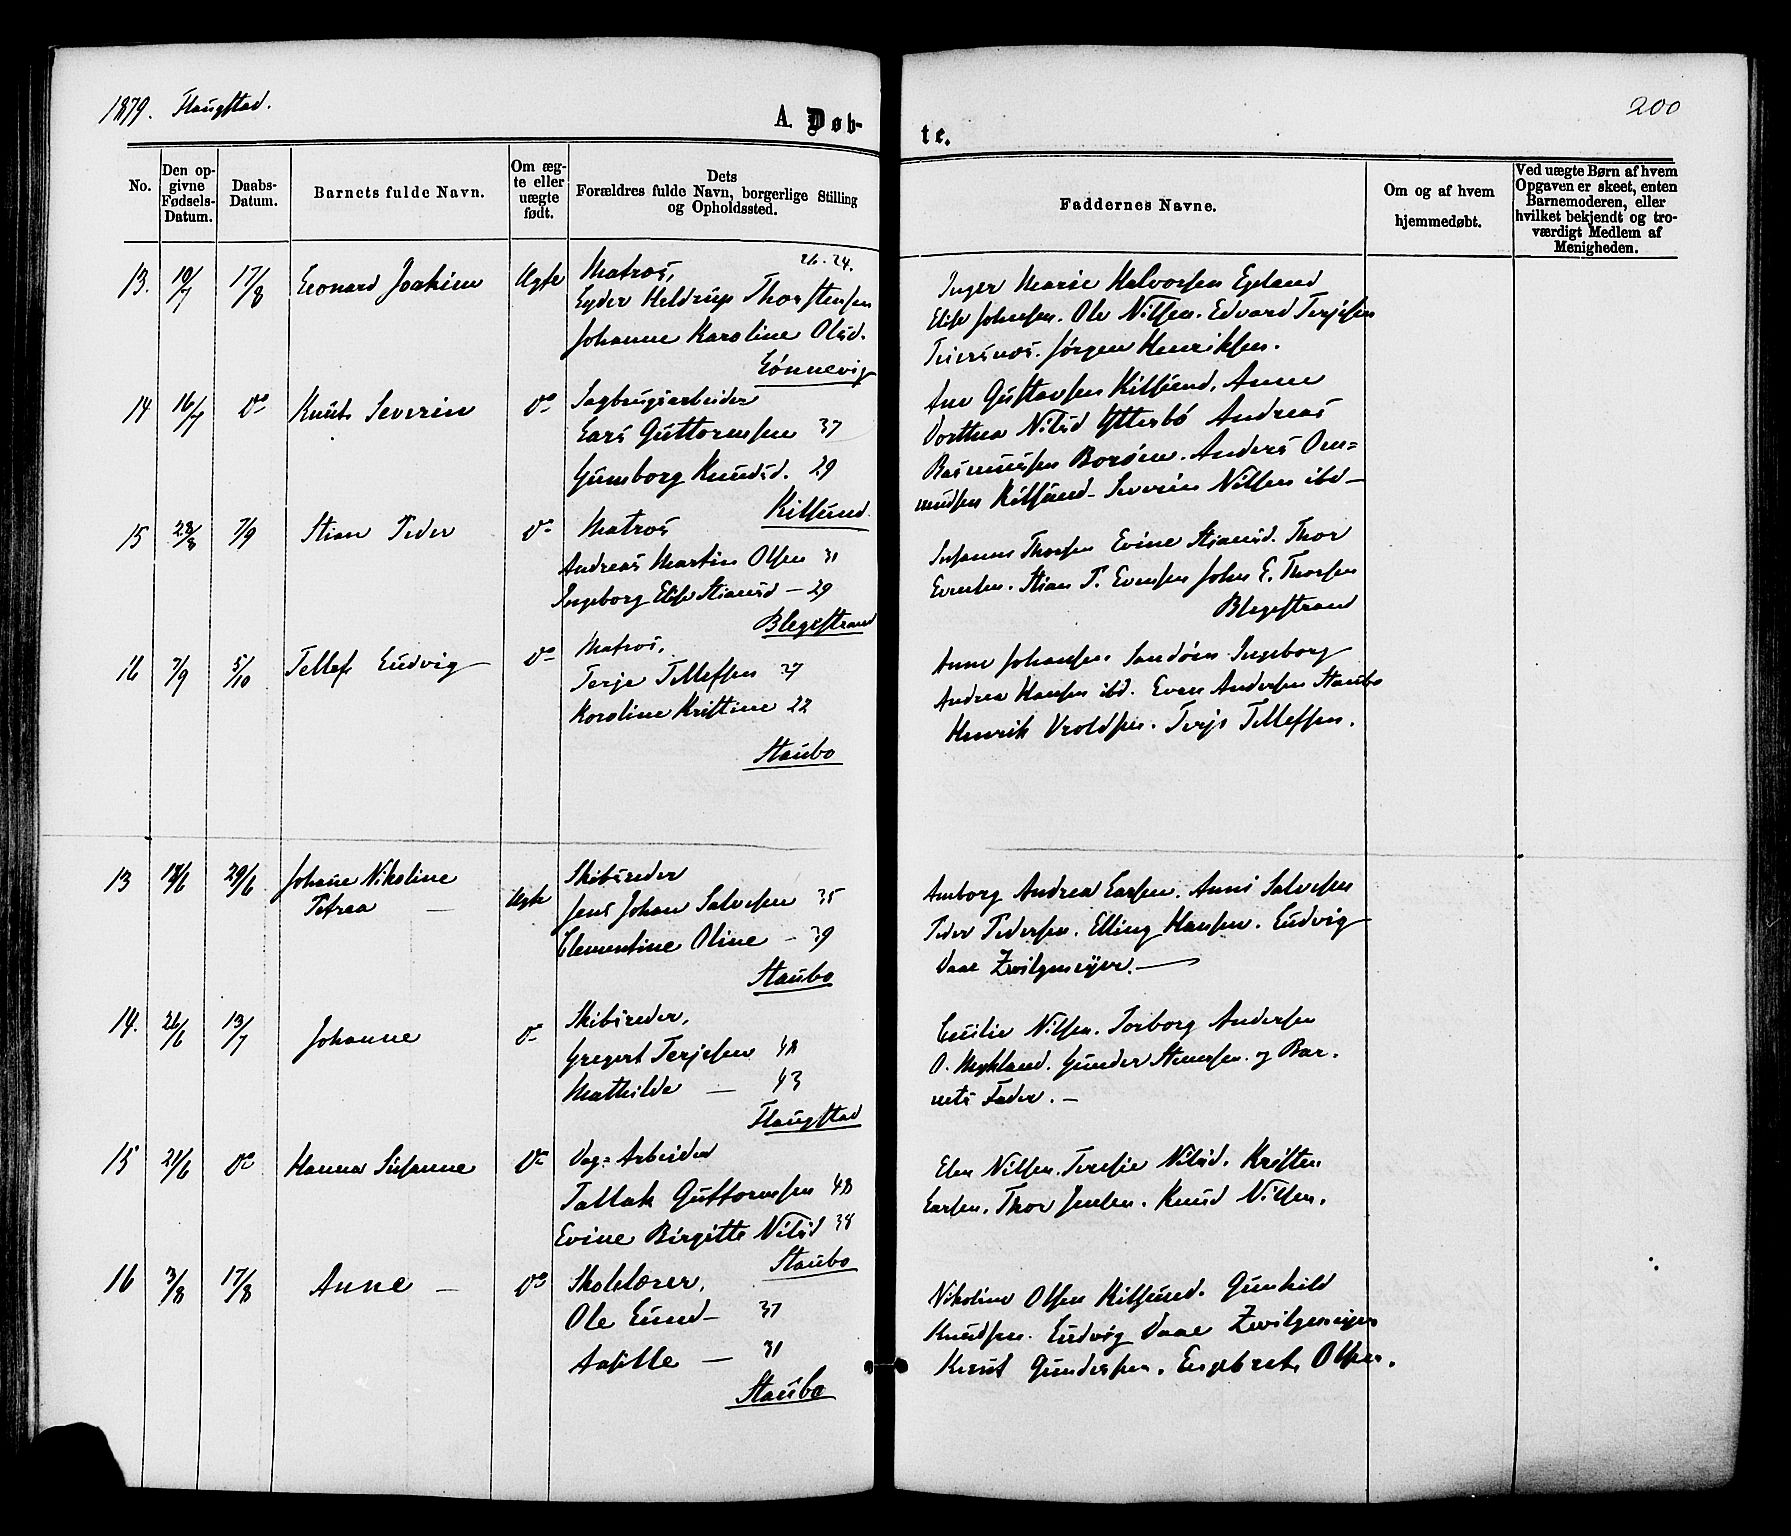 1879. Flaugstad.
200
A. Døb-
te.
No.
Den op-
givne
Fødsels-
Datum.
Daabs-
Datum.
Barnets fulde Navn.
Om æg-
te eller
uægte
født.
Dets
Forældres fulde Navn, borgerlige Stilling
og Opholdssted.
Faddernes Navne.
Om og af hvem
hjemmedøbt.
Ved uægte Børn af hvem
Opgaven er skeet, enten
Barnemoderen, eller
hvilket bekjendt og tro-
værdigt Medlem af
Menigheden.
13. 19/7 17/8 Leonard Joakim Ægte Matros, 26. 24.
Eyder Heldrup Thorstensen
Johanne Karoline Olsd.
Lønnevig
Inger Marie Halvorsen Egeland
Elise Johnsen. Ole Nilsen. Edvard Terjesen
Teiersnæs. Jørgen Henriksen.
14 16/7 Do Knut Severin Do Sagbrugsarbeider
Lars Guttormsen 37
Gunborg Knudsd. 29
Kilsund
Ane Gustavsen Kilsund. Anne
Dorthea Nilsd Ytterbö Andreas
Rasmussen Borøen. Anders Om=
undsen Kilsund - Severin Nilsen ibd -
15 28/8 7/9 Stian Peder Do Matros
Andreas Martin Olsen 31
Ingeborg Elise Stiansd - 29
Blegestrand
Susanne Thorsen Evine Stiansd. Thor
Evensen. Stian P. Evensen John E. Thorsen
Blegestrand
16 7/9 5/10 Tellef Ludvig Do Matros,
Terje Tellefsen 27
Karoline Kristine 22
Staubo
Anne Johansen. Sandøen Ingeborg
Andrea Hansen ibd. Even Andersen Staubo
Henrik Vroldsen. Terje Tellefsen.
13 18/6 29/6 Johane Nikoline
Petrea - Ægte Skibsreder
Jens Johan Salvesen 35
Clementine Oline - 39
Staubo
Amborg Andrea Larsen. Anne Salvesen
Peder Pedersen. Elling Hansen. Ludvig
Daae Zwilgmeyer. -
14. 26/6 13/7 Johanne Do Skibsreder,
Gregert Terjesen 48
Mathilde - 43
Flaugstad
Emilie Nilsen. Torborg Andersen
O. Myhland. Gunder Stensen. og Bar-
nets Fader. -
15 21/6 Do Hanna Susanne Do Dag=Arbeider
Tallak Guttormsen 48
Evine Birgitte Nilsd 38
Staubo
Elen Nilsen. Teresie Nilsd. Kristen
Larsen. Thor Jensen. Knud Nilsen.
16 3/8 17/8 Anne - Do Skolelærer,
Ole Lund - 37
Aasille - 31
Staubo
Nikoline Olsen Kilsund. Gunhild
Knudsen. Ludvig Daae Zwilgmeyer
Knut Gundersen. Engebret Olsen.